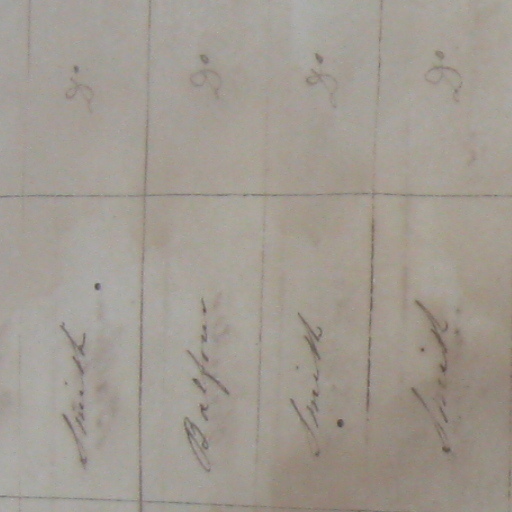 Smith Do
Balfour Do
Smith Do
Smith Do